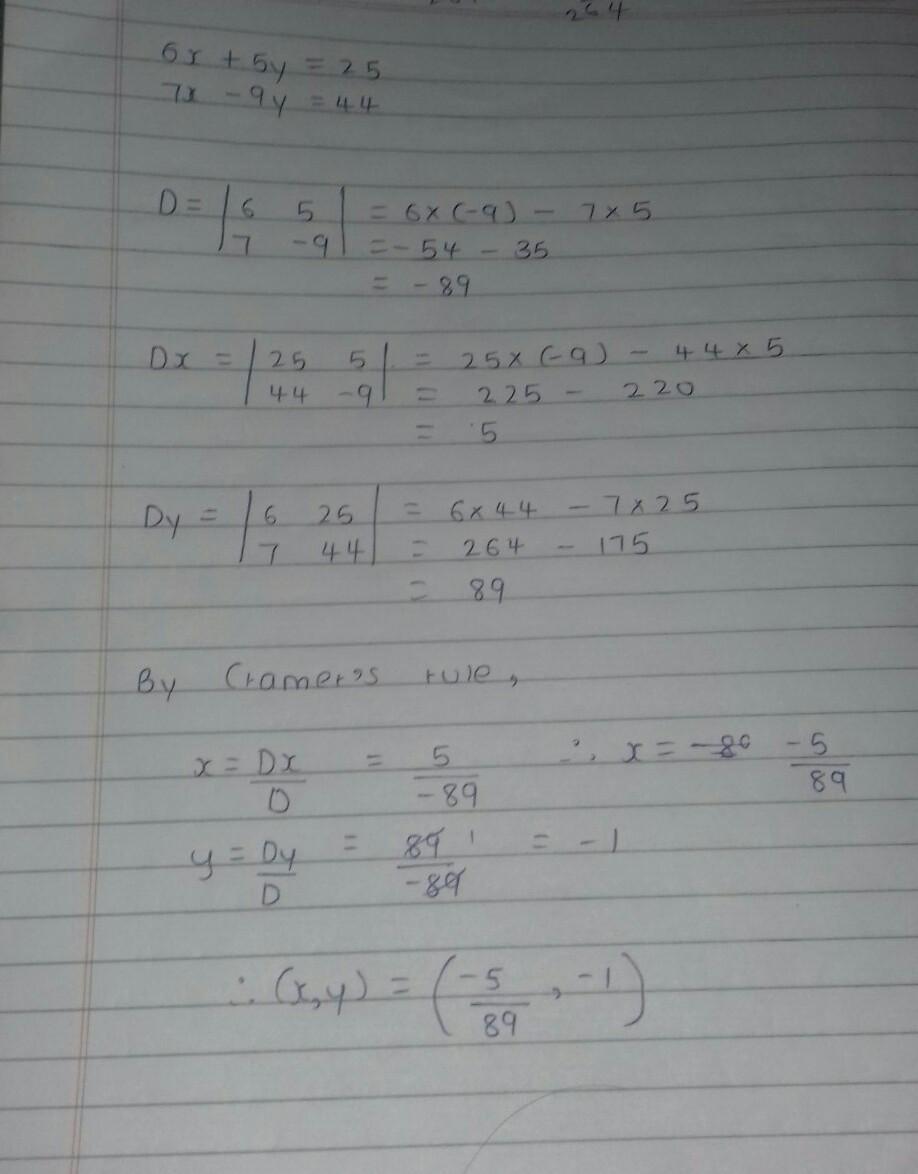 264
6x + 5y = 25
7x - 9y = 44
D = | 6 5 | = 6x(-9) - 7x5
| 7 -9 | = -54 - 35
= -89
Dx = | 25 5 | = 25x(-9) - 44x5
| 44 -9 | = 225 - 220
= 5
Dy = | 6 25 | = 6x44 - 7x25
| 7 44 | = 264 - 175
= 89
By Cramer's rule,
x = Dx/D = 5/-89 ∴ x = -5/89
y = Dy/D = 89/-89 1 = -1
∴ (x,y) = (-5/89, -1)